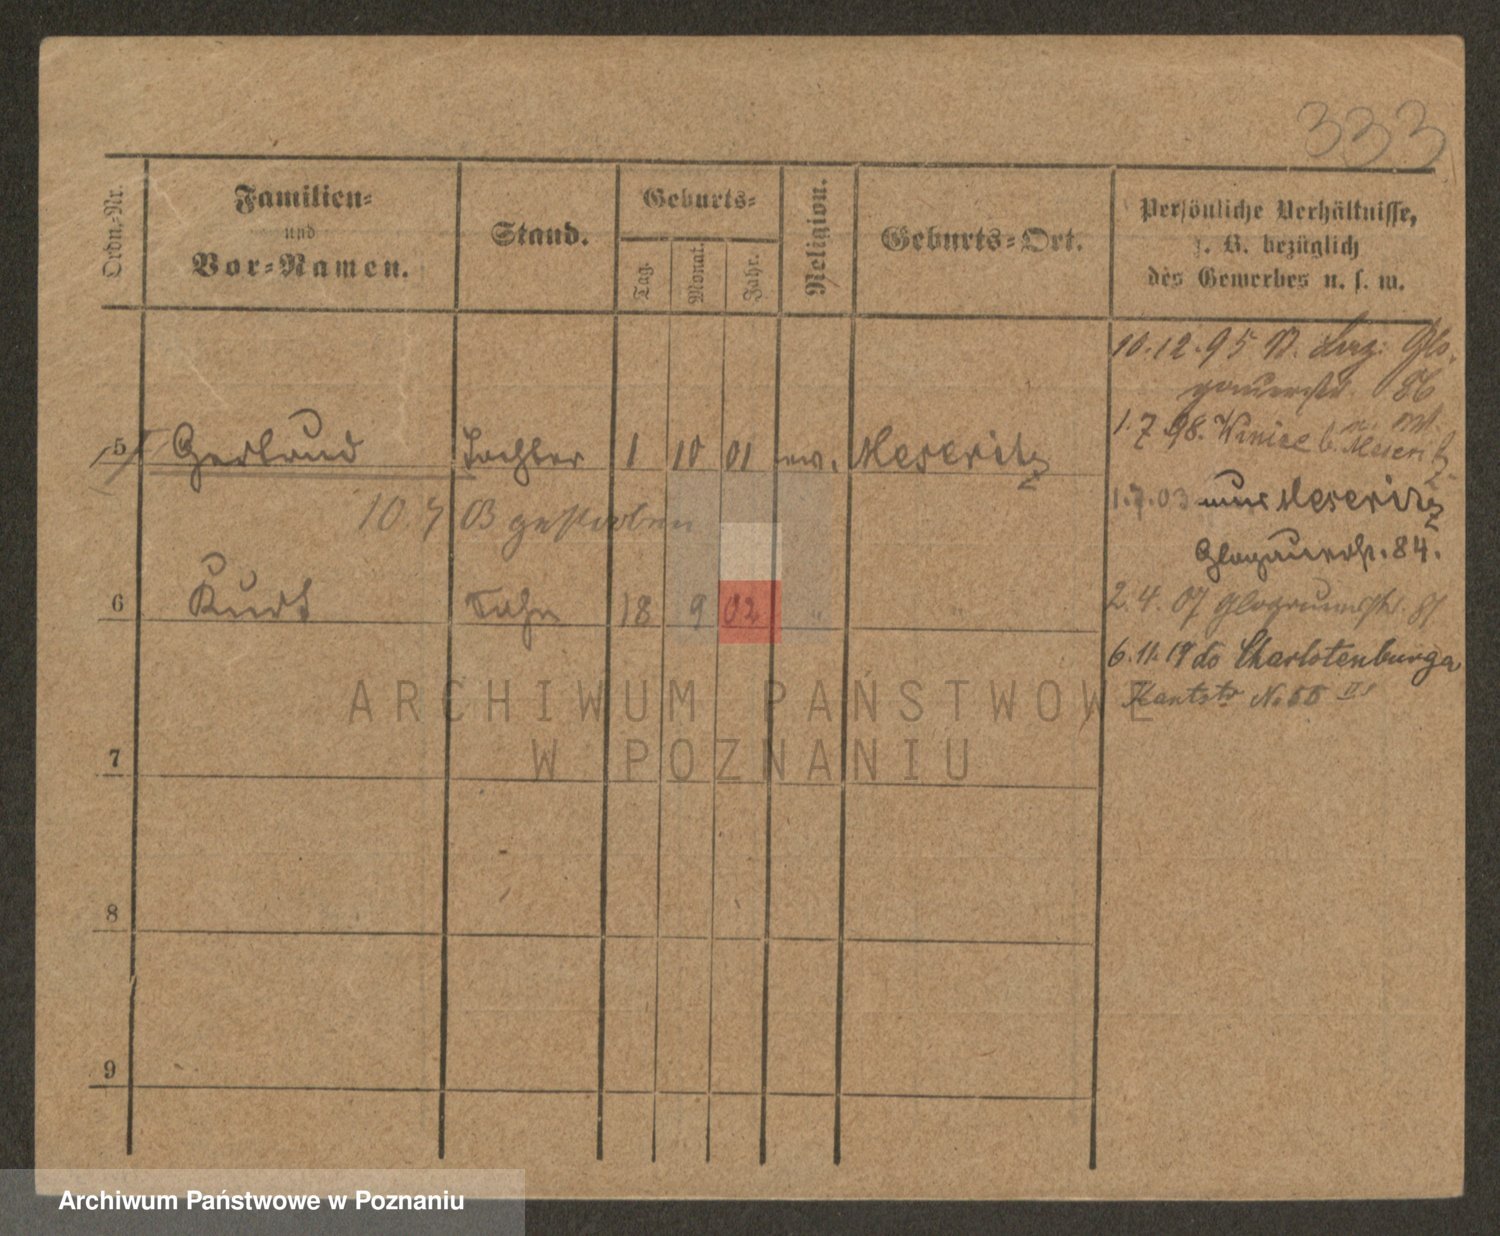 333
Ordn.-Nr.
Familien-
und
Vor-Namen.
Stand.
Geburts-
Tag.
Monat.
Jahr.
Religion.
Geburts-Ort.
Persönliche Verhältnisse,
z. B. bezüglich
des Gewerbes u. s. w.
10.12.95
86
1.7.98. b. Meseritz
5 Tochter 1 10 01 ev. Meseritz
1.7.03 Meseritz
10. 7 03 gestorben
Glogauerstr. 84.
6 Kurt Sohn 18 9 02 "
2.4.07 Glogauerstr.
6.11.19 do Charlotenburga
Kantstr No
ARCHIWUM PAŃSTWOWE
W POZNANIU
7
8
9
Archiwum Państwowe w Poznaniu